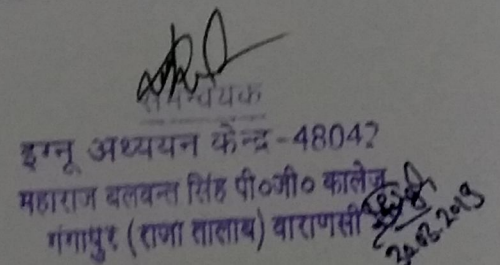 समन्वयक
इग्नू अध्ययन केन्द्र-48042
महाराज बलवन्त सिंह पी०जी० कालेज
गंगापुर (राजा तालाब) वाराणसी
20.03.2019